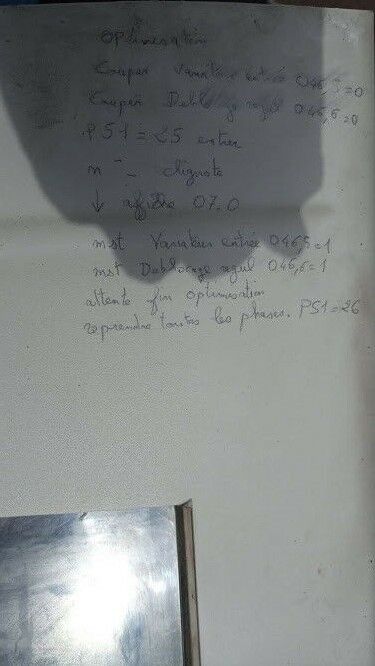 Optimisation
Couper Variateur entrée 046,5=0
Couper Deblocage regul 046,6=0
P51 = 25 entrer
clignote
↓ affiche 07.0
mst Variateur entrée 046,5=1
mst Deblocage regul 046,6=1
attente fin optimisation
reprendre toutes les phases. P51=26